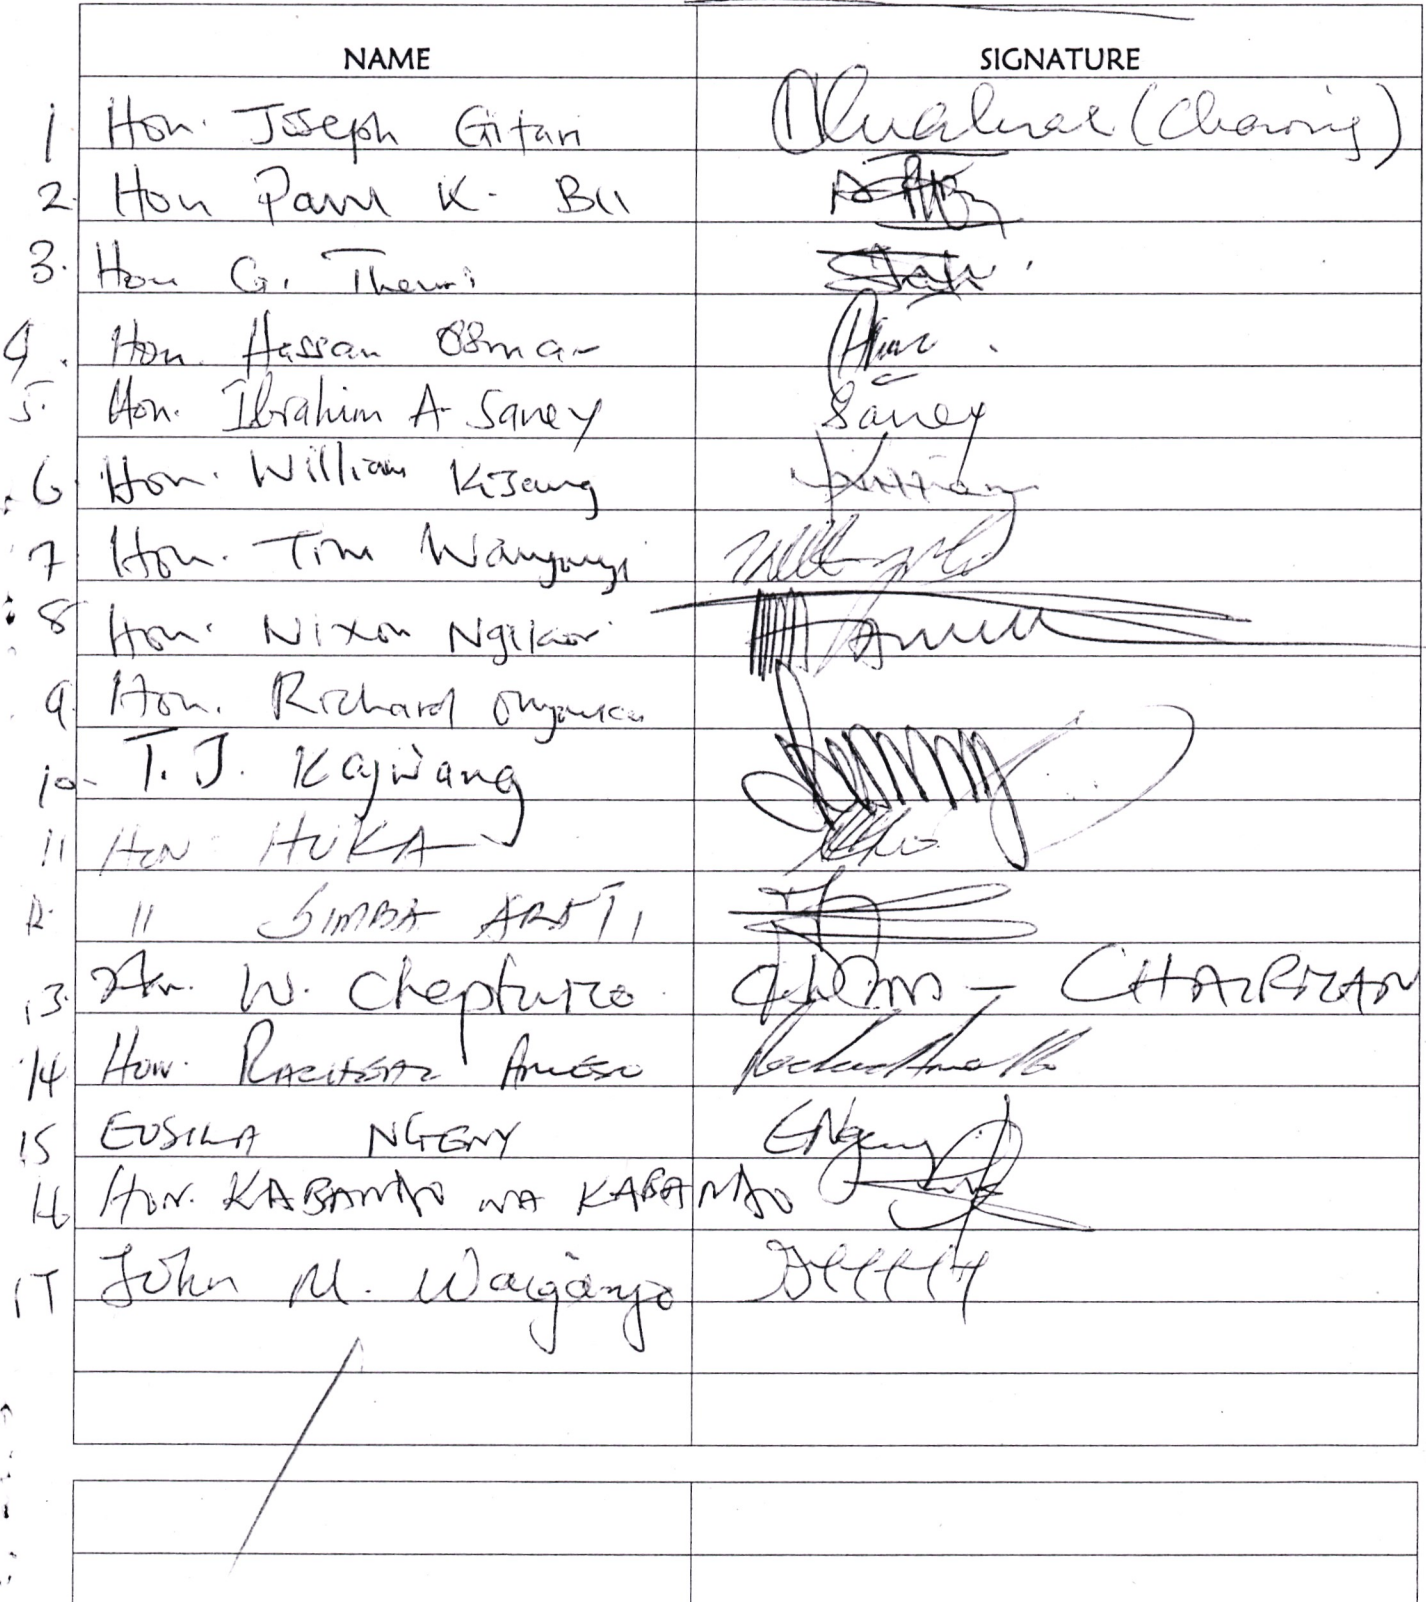 NAME SIGNATURE
1 Hon. Joseph Gitari (Chairing)
2. Hon Paul K. Bii
3. Hon G. Theuri
4. Hon. Hassan Osman
5. Hon. Ibrahim A. Saney Saney
6 Hon. William Kisang
7 Hon. Tim Wanyonyi
8 Hon. Nixon Ngikor
9. Hon. Richard Onyonka
10- T.J. Kajwang
11 HON HUKA
12. 11 SIMBA ARATI
13. Hon. W. Cheptumo. - CHAIRMAN
14 HON. RACHEAL AMESO
15 EUSILA NGENY ENgeny
16 HON. KABANDO WA KABANDO
17 John M. Waiganjo